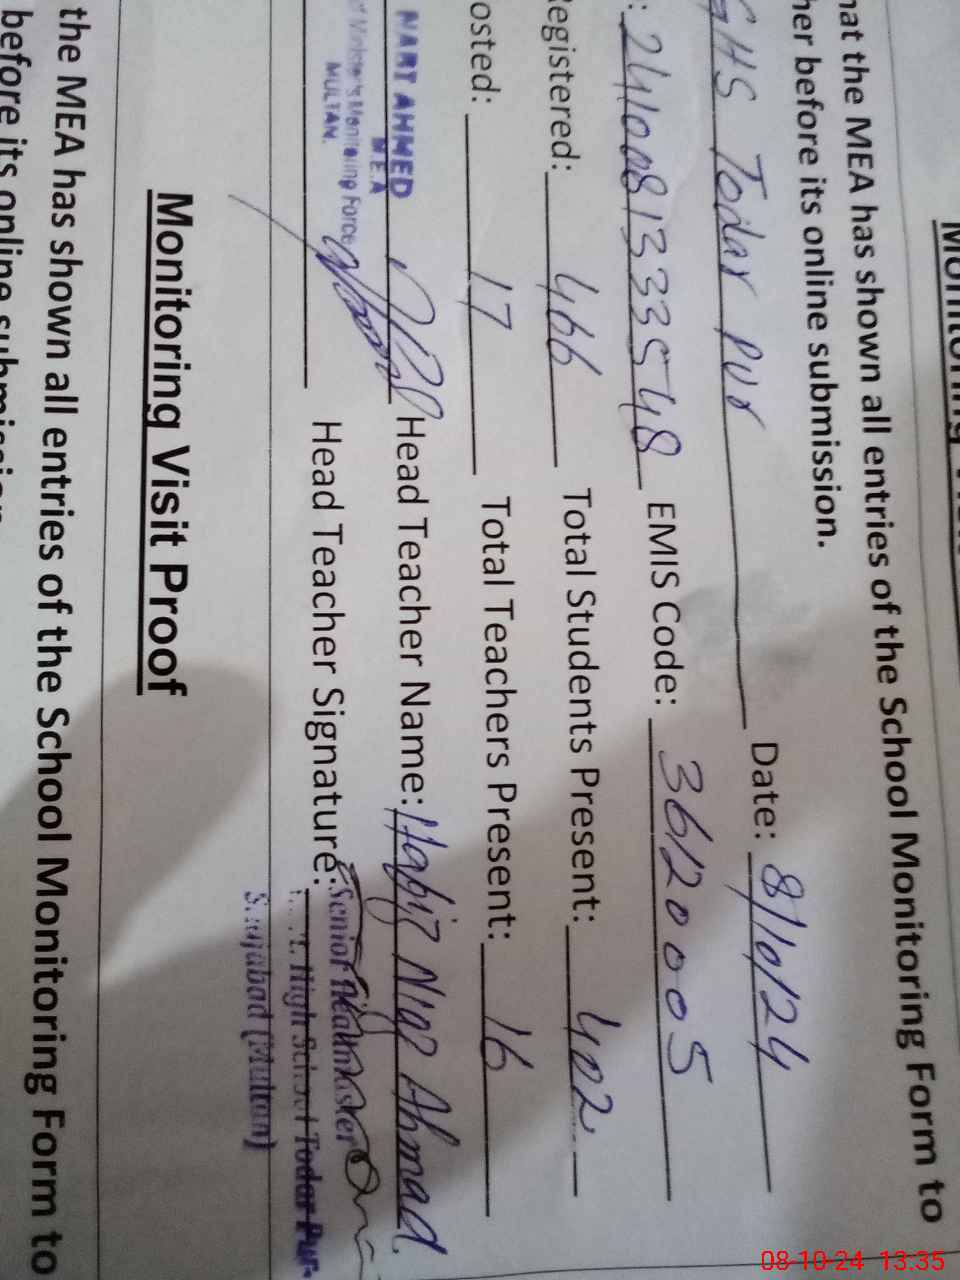 Monitoring
hat the MEA has shown all entries of the School Monitoring Form to
her before its online submission.
GHS Todar Pur Date: 8/10/24
: 2410081333548 EMIS Code: 36120005
Registered: 466 Total Students Present: 402
osted: 17 Total Teachers Present: 16
AHMED Head Teacher Name: Hafiz Niaz Ahmad.
M.E.A
Minister's Monitoring Force
MULTAN.
Head Teacher Signature:
Senior Headmaster
High School Todar Pur
(Multan)
Monitoring Visit Proof
the MEA has shown all entries of the School Monitoring Form to
before its online submission
08-10-24 13:35